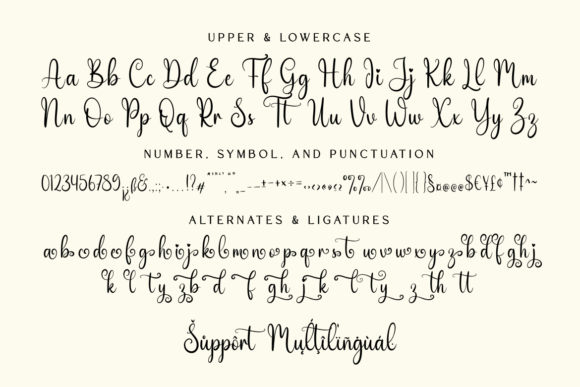 UPPER & LOWERCASE
Aa Bb Cc Dd Ee Ff Gg Hh Ii Jj Kk Ll Mm
Nn Oo Pp Qq Rr Ss Tt Uu Vv Ww Xx Yy Zz
NUMBER, SYMBOL, AND PUNCTUATION
0123456789
ALTERNATES & LIGATURES
a b c d e f g h i j k l m n o p q r s t u v w x y z b d f g h j
k l t y z b d f g h j k l t y z th tt
Šůppôrt Mụľţïlïñġùál